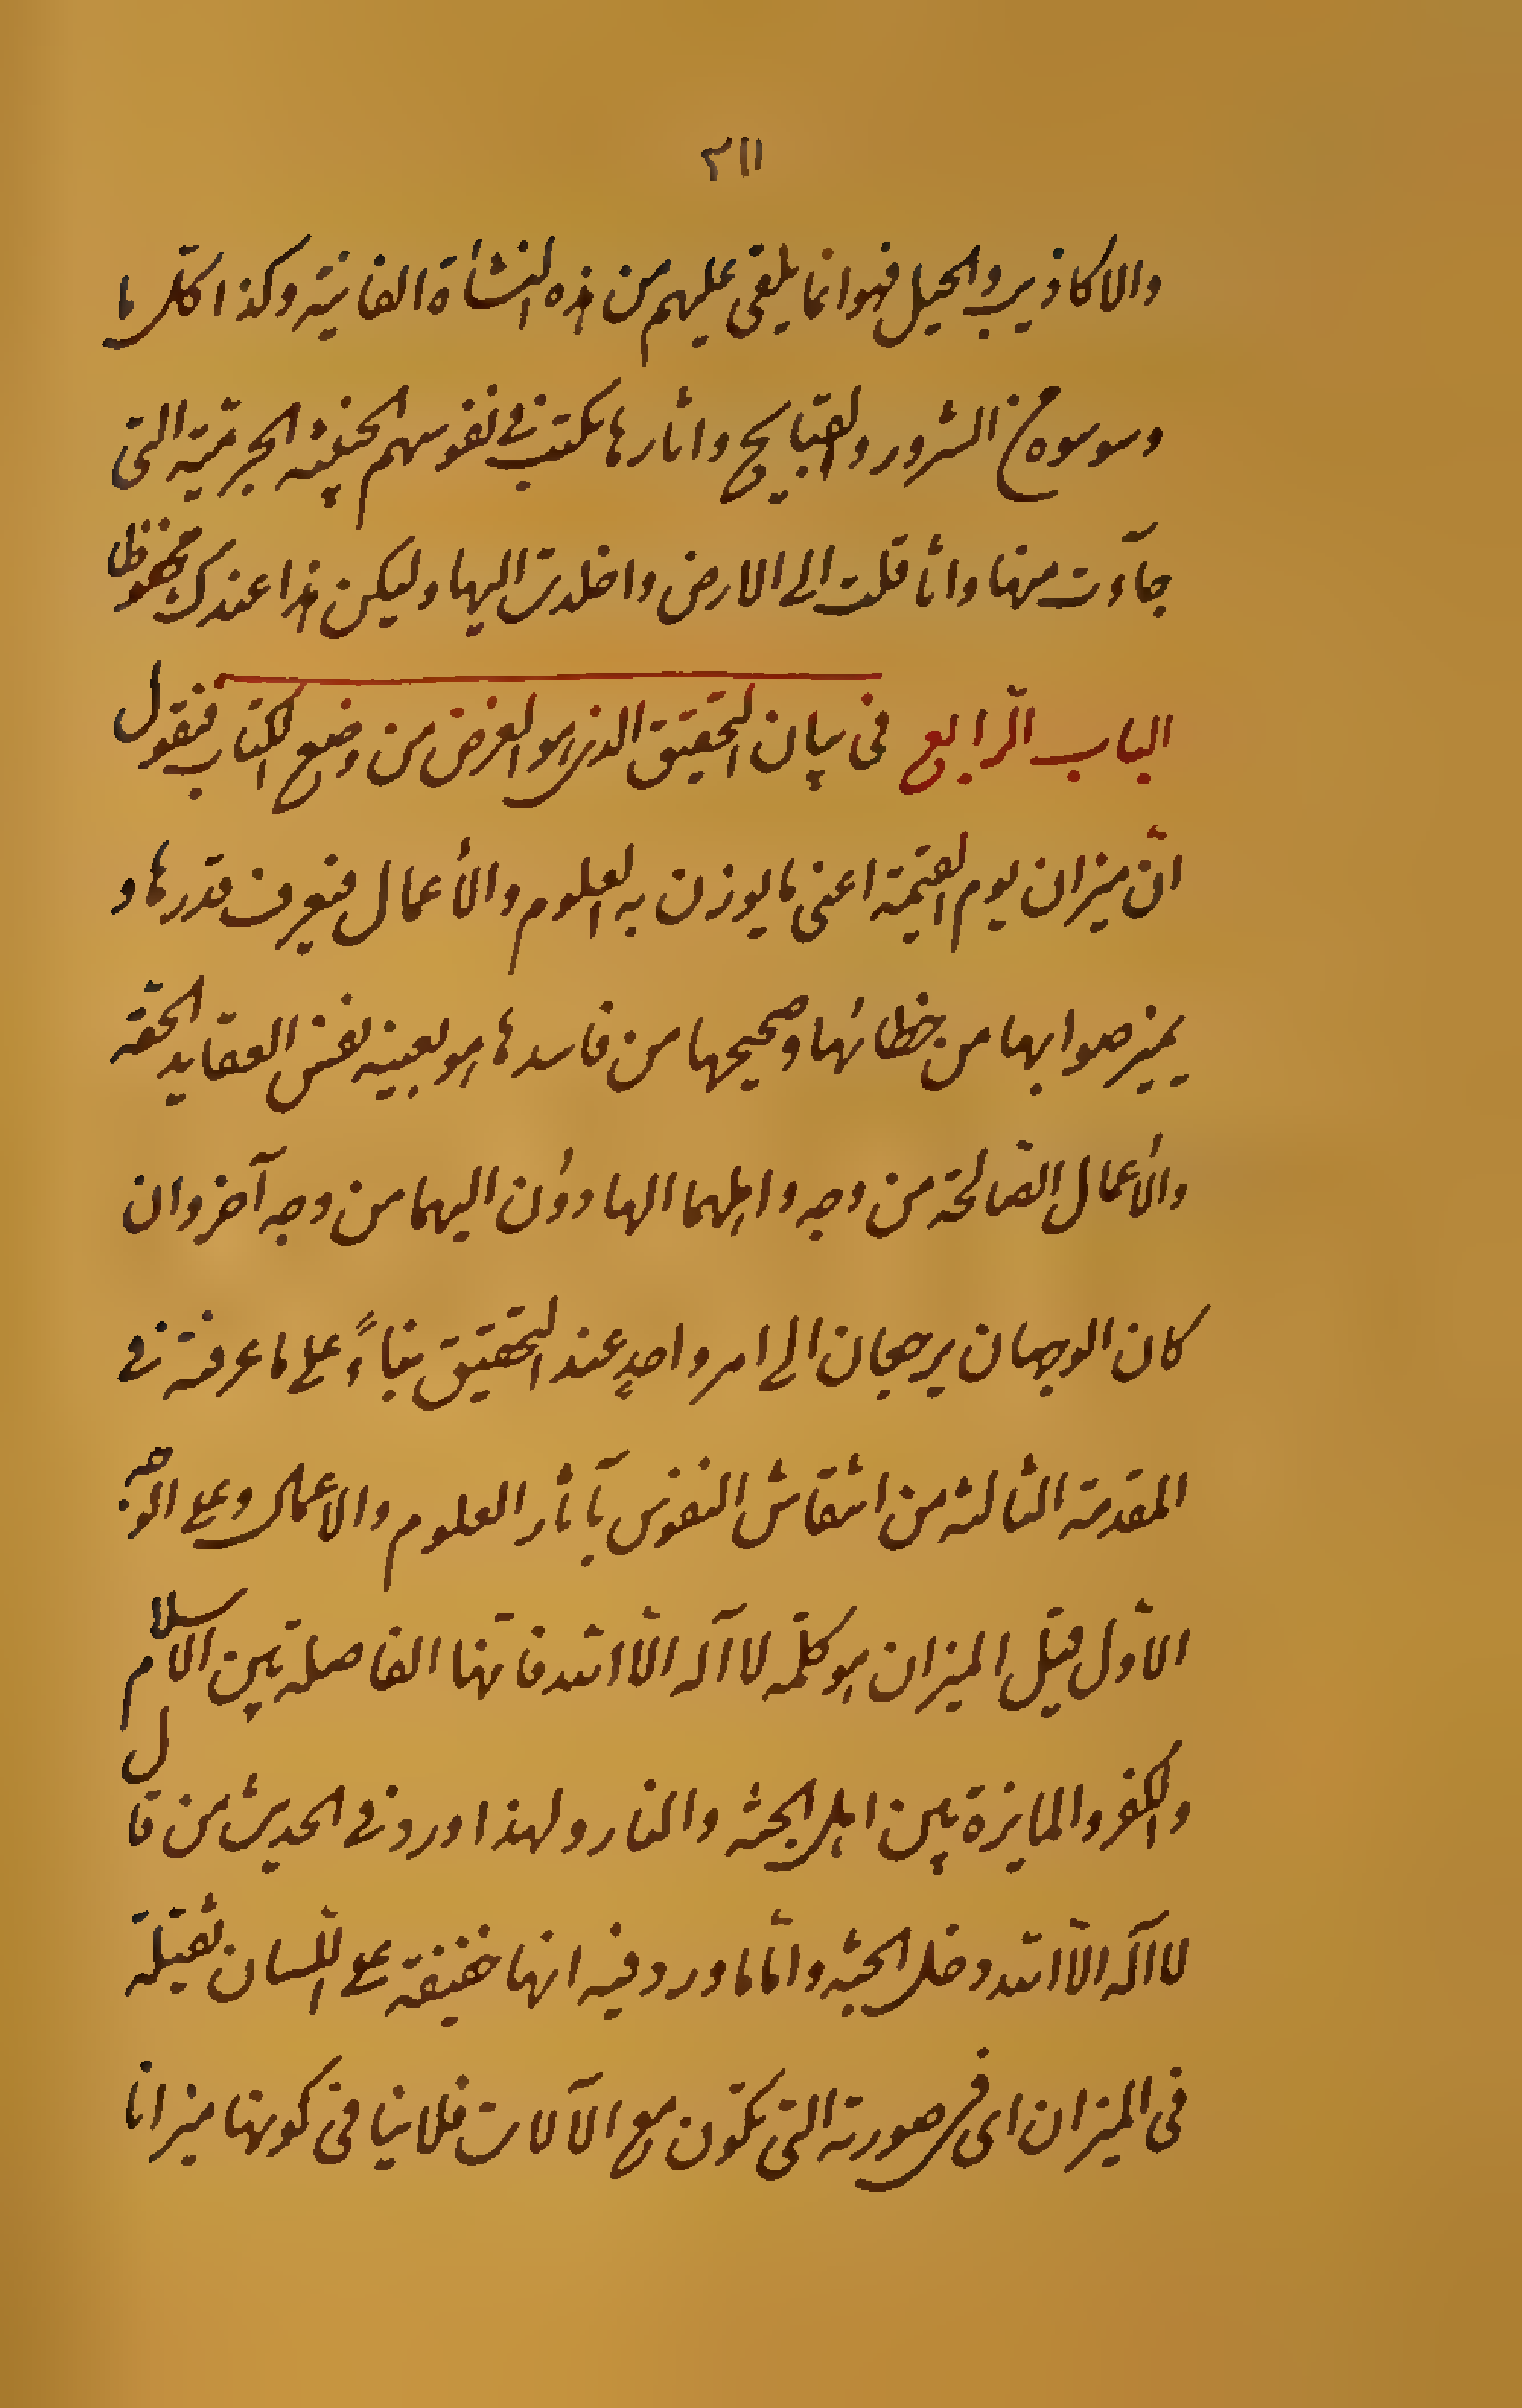 ٣١١
والاكاذيب والحيل فهو انما يلقى عليهم من هذه النشأة الفانية وكذا كلّ ما
وسوسوه من الشرور والقبايح واثارها يكتب في نفوسهم الخبيثه الجرمّية التى
جآءت منها واثاقلت الى الارض واخلدت اليها وليكن هذا عندك محفوظا
الباب الرّابع فى بيان التحقيق الذى هو الغرض من وضع الكتاب فنقول
انّ ميزان يوم القيمة اعنى ما يوزن به العلوم والأعمال فيعرف قدرها و
يميز صوابها من خطائها وصحيحها من فاسدها هو بعينه نفس العقايد الحقّه
والأعمال الصّالحة من وجه واهلهما الهادون اليهما من وجه آخر وان
كان الوجهان يرجعان الى امر واحدٍ عند التحقيق بناءً على ما عرفته في
المقدمة الثالثه من انتقاش النفوس بآثار العلوم والاعمال وعلى الوجه
الاوّل قيل الميزان هو كلمّه لا آله الّا اللّه فانّها الفاصلة بين الاسلام
والكفر والمايزة بين اهل الجنّه والنار ولهذا ورد في الحديث من قال
لا آله الّا اللّه دخل الجنّه وامّا ما ورد فيه انها خفيفة على اللّسان ثقيلة
فى الميزان اى فى صورته التى تكون مع الآلات فلا ينافى كونها ميزانا